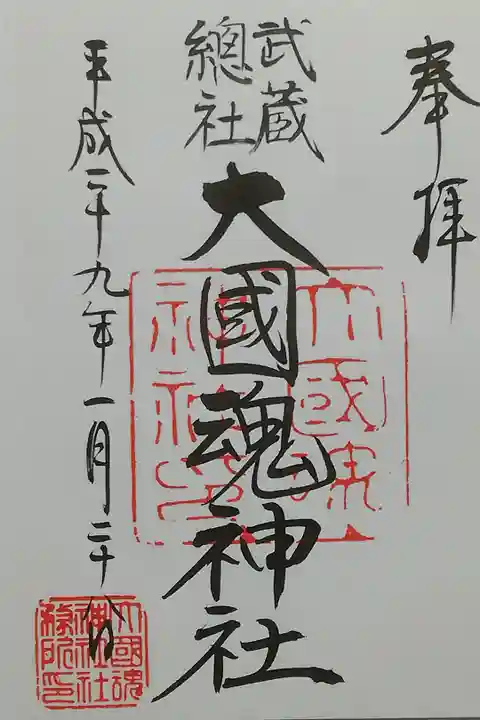 奉拝
武蔵
總社
大國魂神社
平成二十九年一月二十八日
大國魂
神社印
大國魂
神社社
務所印